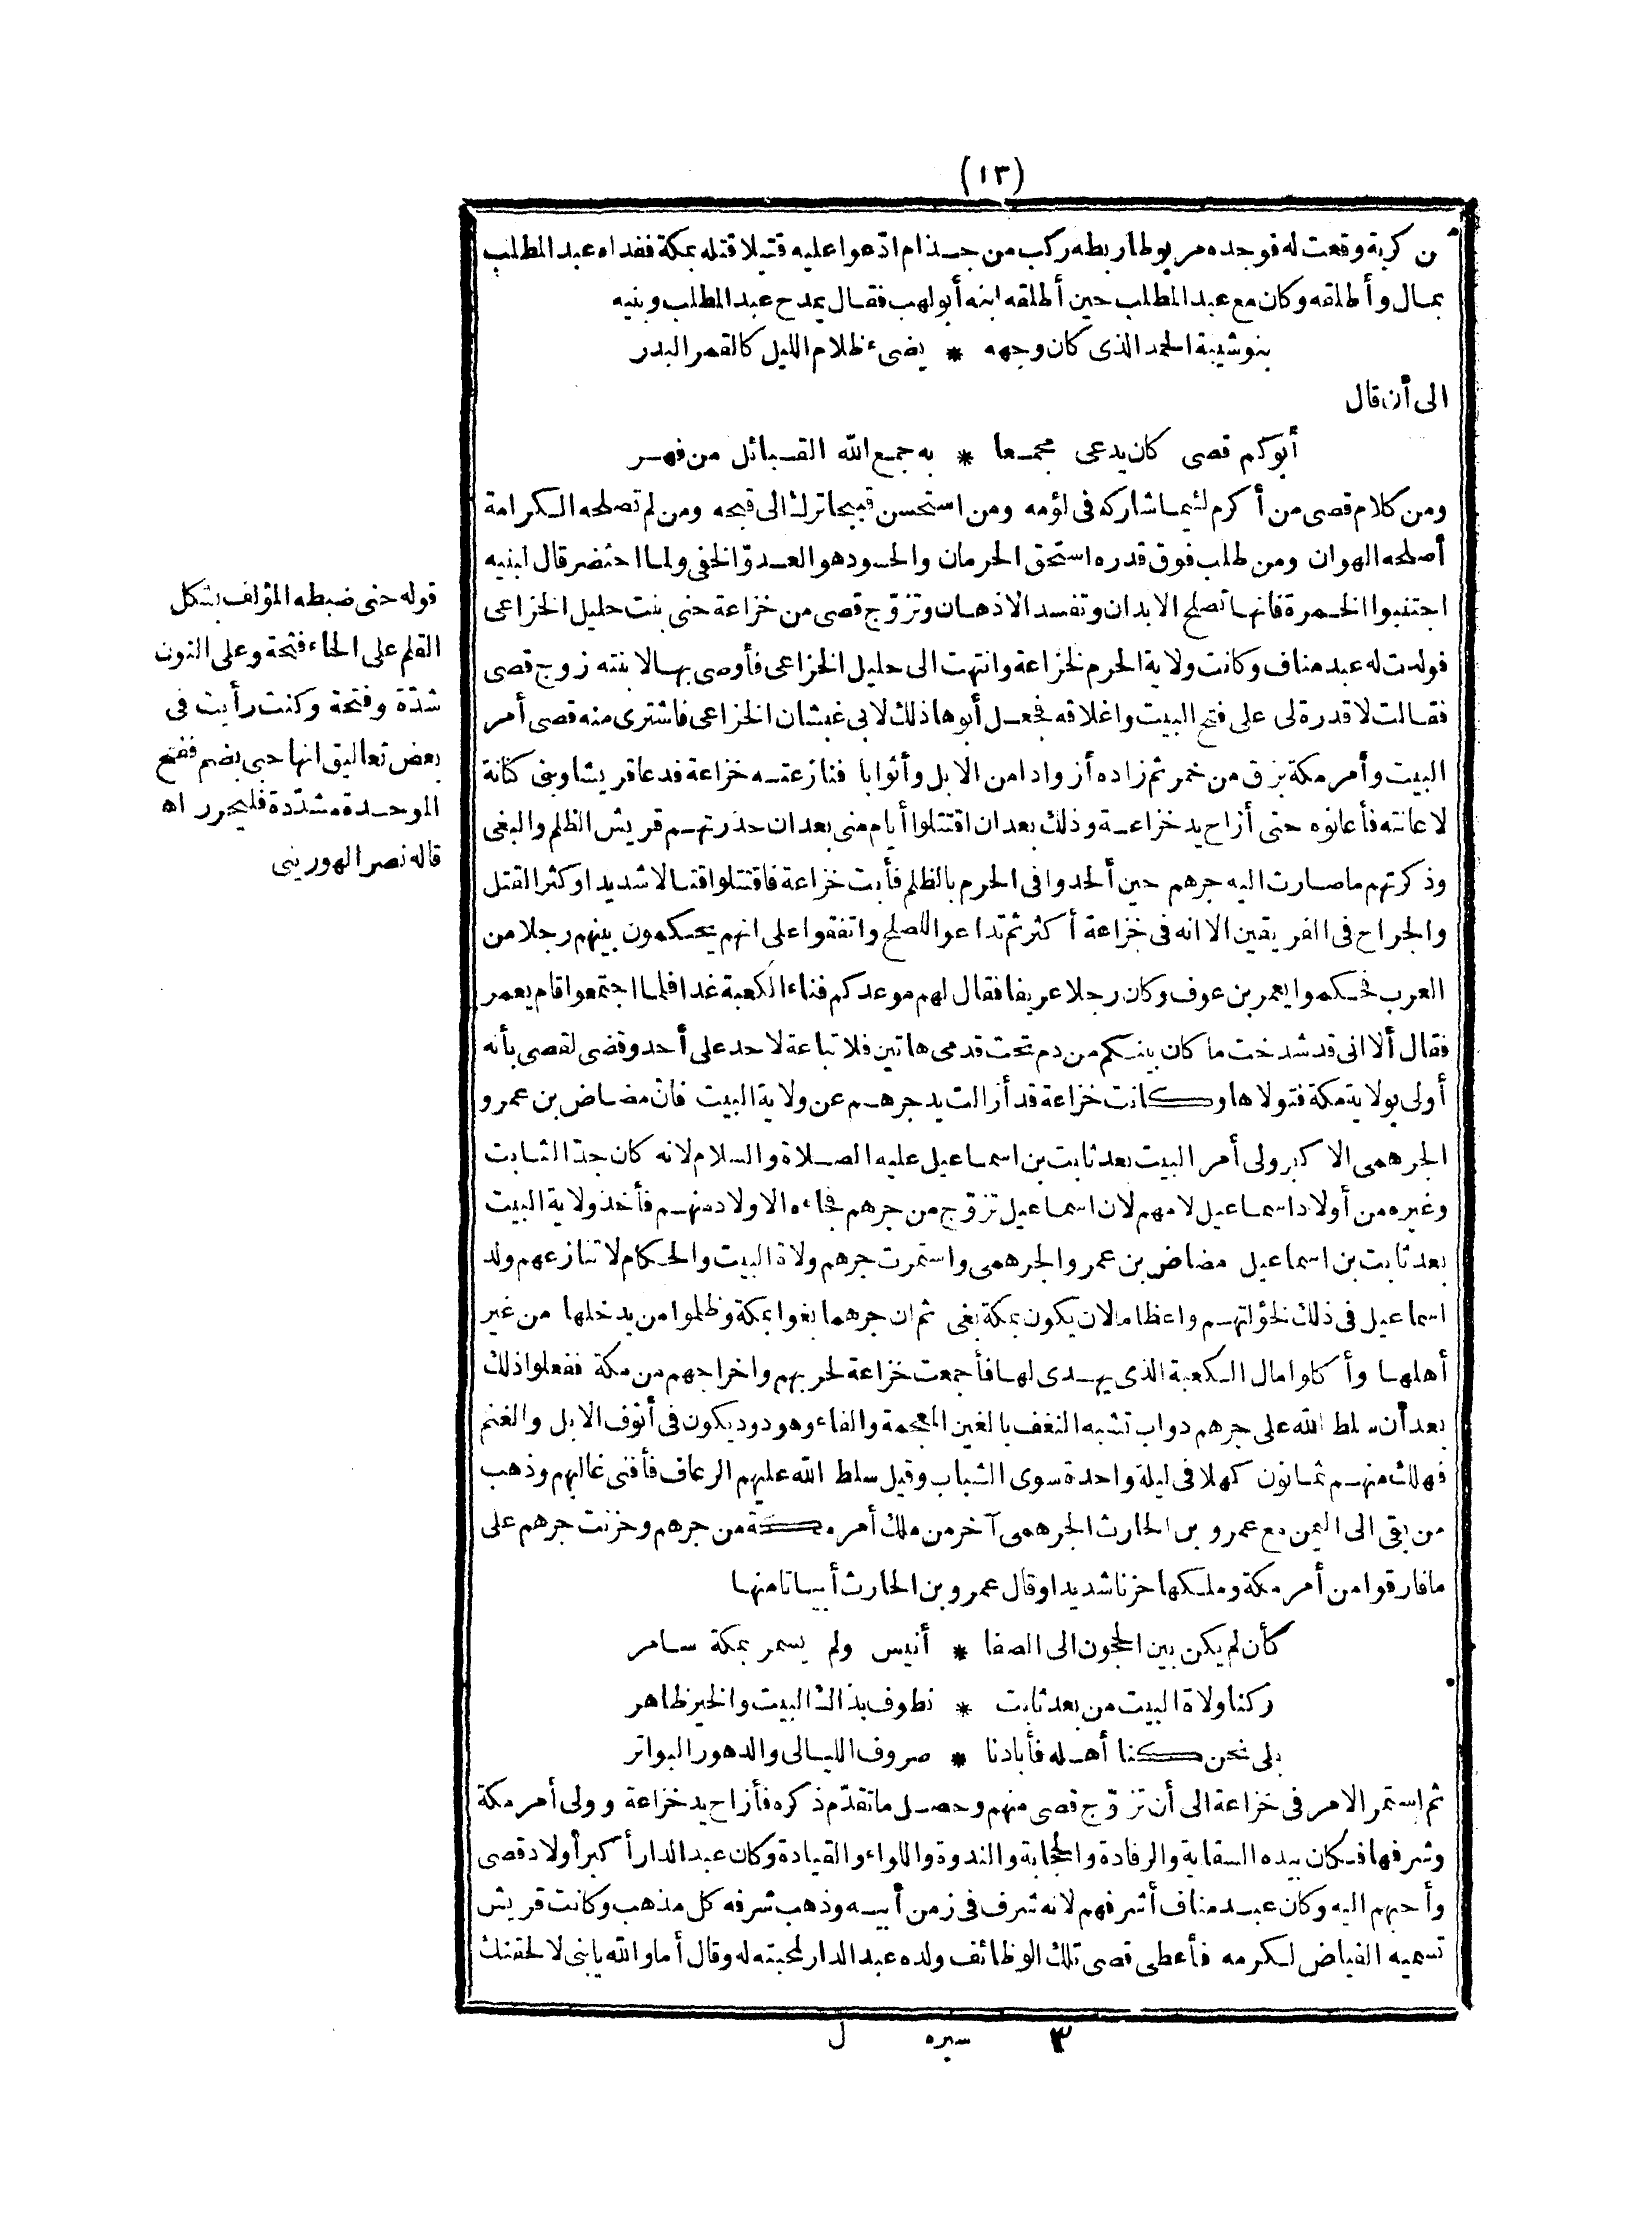 (١٣)
من كربة وقعت له فوجده مربوطا ربطه ركب من جذام ادّعوا عليه قتيلا قتله بمكة ففداه عبد المطلب
بمال وأطلقه وكان مع عبد المطلب حين أطلقه ابنه أبو لهب فقال يمدح عبد المطلب وبنيه
بنو شيبة الحمد الذى كان وجهه * يضىء ظلام الليل كالقمر البدر
الى أن قال
أبوكم قصى كان يدعى مجمعا * به جمع الله القبائل من فهر
ومن كلام قصى من أكرم لئيما شاركه فى لؤمه ومن استحسن قبيحا ترك الى قبحه ومن لم تصلحه الكرامة
أصلحه الهوان ومن طلب فوق قدره استحق الحرمان والحسود هو العدوّ الخفى ولما احتضر قال لبنيه
اجتنبوا الخمرة فانها تصلح الابدان وتفسد الاذهان وتزوّج قصى من خزاعة حنى بنت حليل الخزاعى
فولدت له عبد مناف وكانت ولاية الحرم لخزاعة وانتهت الى حليل الخزاعى فأوصى بها لابنته زوج قصى
فقالت لا قدرة لى على فتح البيت واغلاقه فجعل أبوها ذلك لابى غبشان الخزاعى فاشترى منه قصى أمر
البيت وأمر مكة بزق من خمر ثم زاده أزوادا من الابل وأثوابا فنازعته خزاعة فدعا قريشا وبنى كنانة
لاعانته فأعانوه حتى أزاح يد خزاعة وذلك بعد ان اقتتلوا أيام منى بعد ان حذرتهم قريش الظلم والبغى
وذكرتهم ما صارت اليه جرهم حين ألحدوا فى الحرم بالظلم فأبت خزاعة فاقتتلوا قتالا شديدا وكثر القتل
والجراح فى الفريقين الا انه فى خزاعة أكثر ثم تداعوا للصلح واتفقوا على انهم يحكمون بينهم رجلا من
العرب فحكموا يعمر بن عوف وكان رجلا عريفا فقال لهم موعدكم فناء الكعبة غدا فلما اجتمعوا قام يعمر
فقال ألا انى قد شدخت ما كان بينكم من دم تحت قدمى هاتين فلا تباعة لاحد على أحد وقضى لقصى بأنه
أولى بولاية مكة فتولاها وكانت خزاعة قد أزالت يد جرهم عن ولاية البيت فان مضاض بن عمرو
الجرهمى الاكبر ولى أمر البيت بعد ثابت بن اسماعيل عليه الصلاة والسلام لانه كان جدّا لثابت
وغيره من أولاد اسماعيل لامهم لان اسماعيل تزوّج من جرهم فجاءه الاولاد منهم فأخذ ولاية البيت
بعد ثابت بن اسماعيل مضاض بن عمرو الجرهمى واستمرت جرهم ولاة البيت والحكام لا تنازعهم ولد
اسماعيل فى ذلك لخؤلتهم واعظاما لان يكون بمكة بغى ثم ان جرهما بغوا بمكة وظلموا من يدخلها من غير
أهلها وأكلوا مال الكعبة الذى يهدى لها فأجمعت خزاعة لحربهم واخراجهم من مكة ففعلوا ذلك
بعد أن سلط الله على جرهم دواب تشبه النغف بالغين المعجمة والفاء وهو دود يكون فى أنوف الابل والغنم
فهلك منهم ثمانون كهلا فى ليلة واحدة سوى الشباب وقيل سلط الله عليهم الرعاف فأفنى غالبهم وذهب
من بقى الى اليمن مع عمرو بن الحارث الجرهمى آخر من ملك أمر مكة من جرهم وحزنت جرهم على
ما فارقوا من أمر مكة وملكها حزنا شديدا وقال عمرو بن الحارث أبياتا منها
كأن لم يكن بين الحجون الى الصفا * أنيس ولم يسمر بمكة سامر
وكنا ولاة البيت من بعد ثابت * نطوف بذاك البيت والخير ظاهر
بلى نحن كنا أهله فأبادنا * صروف الليالى والدهور البواتر
ثم استمر الامر فى خزاعة الى أن تزوّج قصى منهم وحصل ما تقدّم ذكره فأزاح يد خزاعة وولى أمر مكة
وشرفها فكان بيده السقاية والرفادة والحجابة والندوة واللواء والقيادة وكان عبد الدار أكبر أولاد قصى
وأحبهم اليه وكان عبد مناف أشرفهم لانه شرف فى زمن أبيه وذهب شرفه كل مذهب وكانت قريش
تسميه الفياض لكرمه فأعطى قصى تلك الوظائف ولده عبد الدار لمحبته له وقال أما والله يابنى لالحقنك
٣ سيره ل
قوله حنى ضبطه المؤلف بشكل
القلم على الحاء فتحة وعلى النون
شدّة وفتحة وكنت رأيت فى
بعض تعاليق انها حبى بضم ففتح
الموحدة مشدّدة فليحرر اه
قاله نصر الهورينى